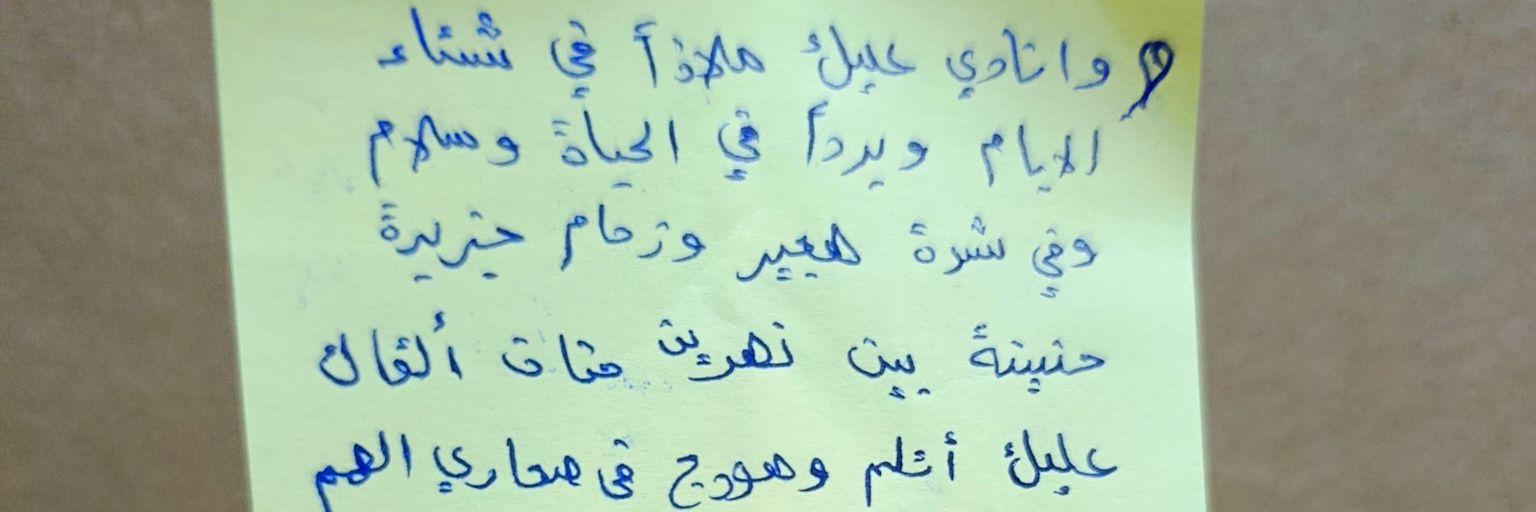 وانادي عليك ملاذأ في شتاء
الايام وبردأ في الحياة وسلام
وفي شدة هجير وزحام جزيرة
حنينة بين نهرين حتان ألقاك
عليك أتلم وهودج في صحاري الهم